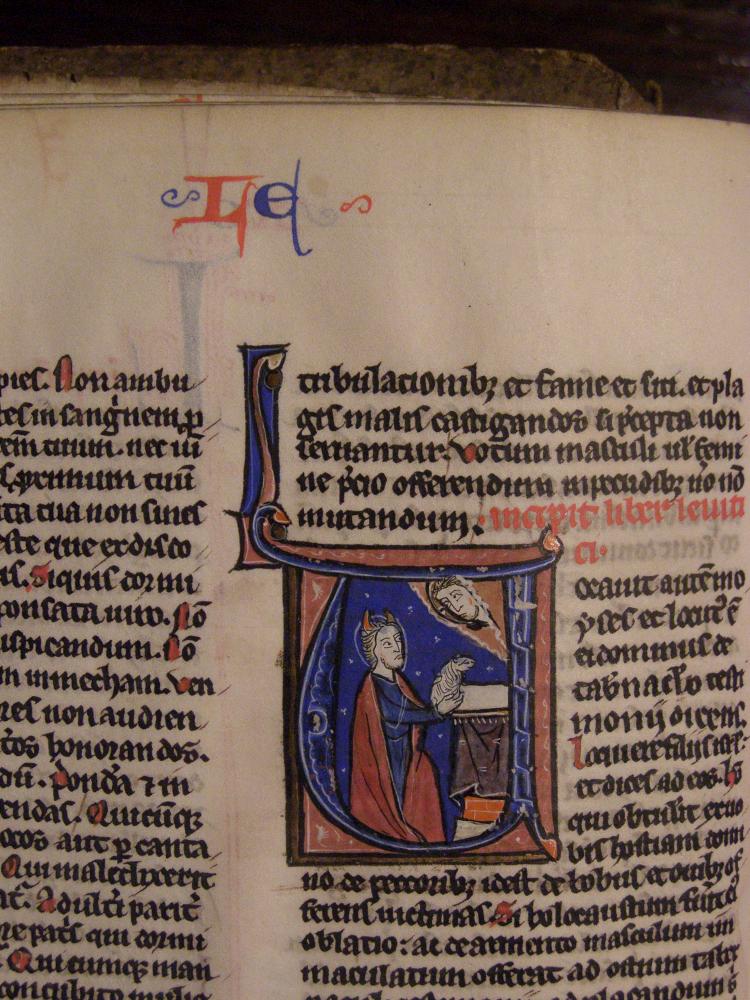 LE
pies. Non ambu
tes in sanguinem p
tuum. nec
tuū
tua non sines
este que ex disco
Siquis dormi
uiro. Nō
uspicandum. Nō
mecham. Ven
res non audien
honorandos.
Ponda ⁊ m
endas. Quicūqꝫ
aut p canta
Qui maledixerit
Adultī parit
re patͥs qui dormi
Qui cumqꝫ man
concubitu
tribulationibꝫ et fame et siti. et pla
gis malis castigandos si pͥcepta non
seruantur. Votum masculi ul femi
ne pͥcio offerendum īpecudibꝫ uͦo nō
mutandum. Incipit liber leuiti
ci.
Vocauit autēmo
yses et locutꝰ ē
ei dominus de
tabͬnacl̄o testi
monij dicens.
Loquere filijs isrl̄:
et dices ad eos. hō
qui obtulit exuo
bis hostiam domi
no de pecoribꝫ idest de bobus et ouibꝫ of
ferens uictimas. Si holocaustum fuͥit eiͥ
oblatio: ac de armento masculum im
maculatum offerat ad ostium tabͬ